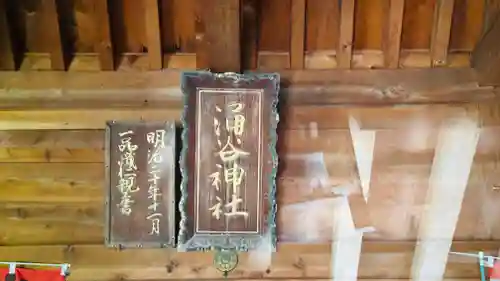 涌谷神社
明治二十年十一月
一品熾仁親書